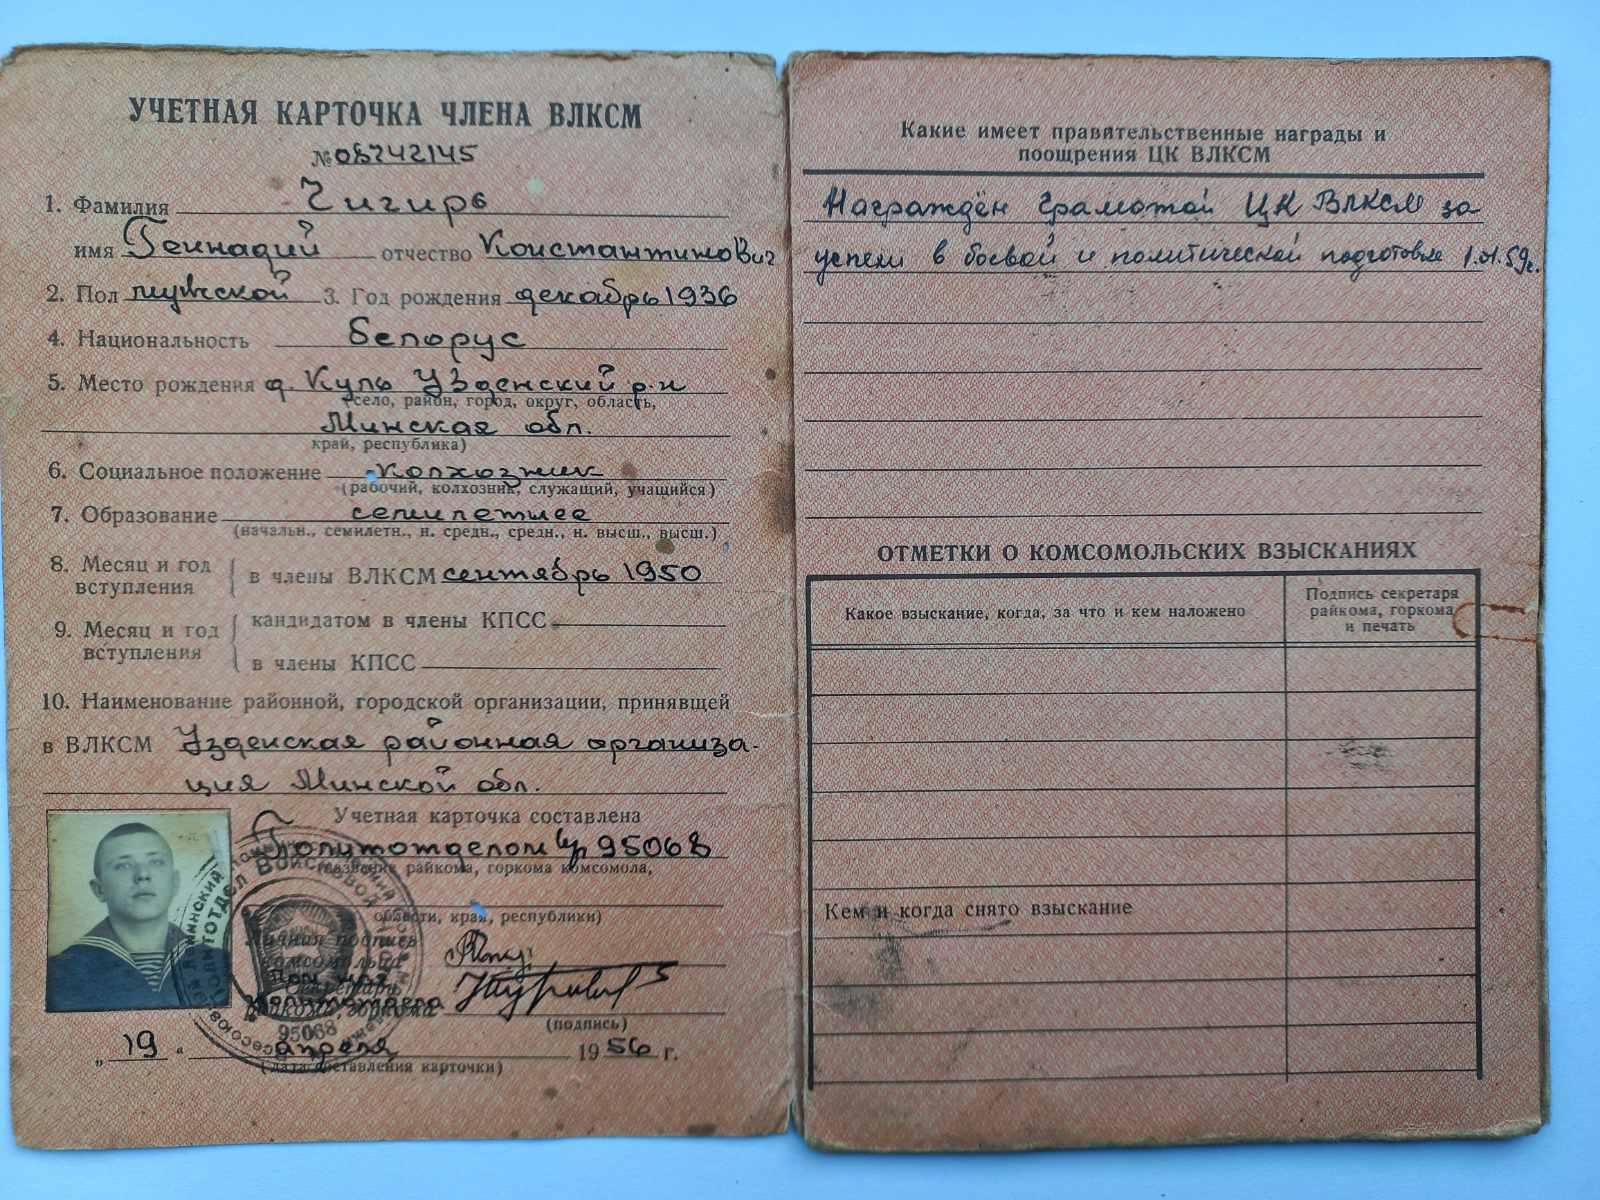 УЧЕТНАЯ КАРТОЧКА ЧЛЕНА ВЛКСМ
№ 08742145
1. Фамилия Чигирь
имя Геннадий отчество Константинович
2. Пол мужской 3. Год рождения декабрь 1936
4. Национальность белорус
5. Место рождения д. Куль Узденский р-н
(село, район, город, округ, область,
Минская обл.
край, республика)
6. Социальное положение колхозник
(рабочий, колхозник, служащий, учащийся)
7. Образование семилетнее
(начальн., семилетн., н. средн., средн., н. высш., высш.)
8. Месяц и год вступления в члены ВЛКСМ сентябрь 1950
9. Месяц и год вступления кандидатом в члены КПСС
в члены КПСС
10. Наименование районной, городской организации, принявшей
в ВЛКСМ Узденская районная организа-
ция Минской обл.
Учетная карточка составлена
Политотделом в/ч 95068
(название райкома, горкома комсомола,
области, края, республики)
Личная подпись
комсомольца
Секретарь
райкома, горкома
(подпись)
ПОЛИТОТДЕЛ ВОЙСКОВОЙ
95068
„ 19 “ апреля 1956 г.
(дата составления карточки)
Какие имеет правительственные награды и
поощрения ЦК ВЛКСМ
Награждён грамотой ЦК ВЛКСМ за
успехи в боевой и политической подготовке 1.01.59г.
ОТМЕТКИ О КОМСОМОЛЬСКИХ ВЗЫСКАНИЯХ
Какое взыскание, когда, за что и кем наложено
Подпись секретаря
райкома, горкома
и печать
Кем и когда снято взыскание